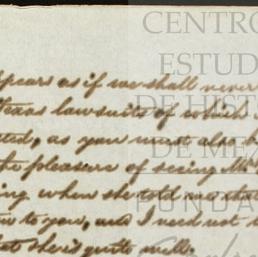 CENTRO
ESTUD
DE HIST
DE ME
FUNDA
ppears as if we shall never
Texas lawsuits of which
ted, as you must also
the pleasure of seeing Mrs
ing when she told me that
to you, and I need not
that she is quite well;